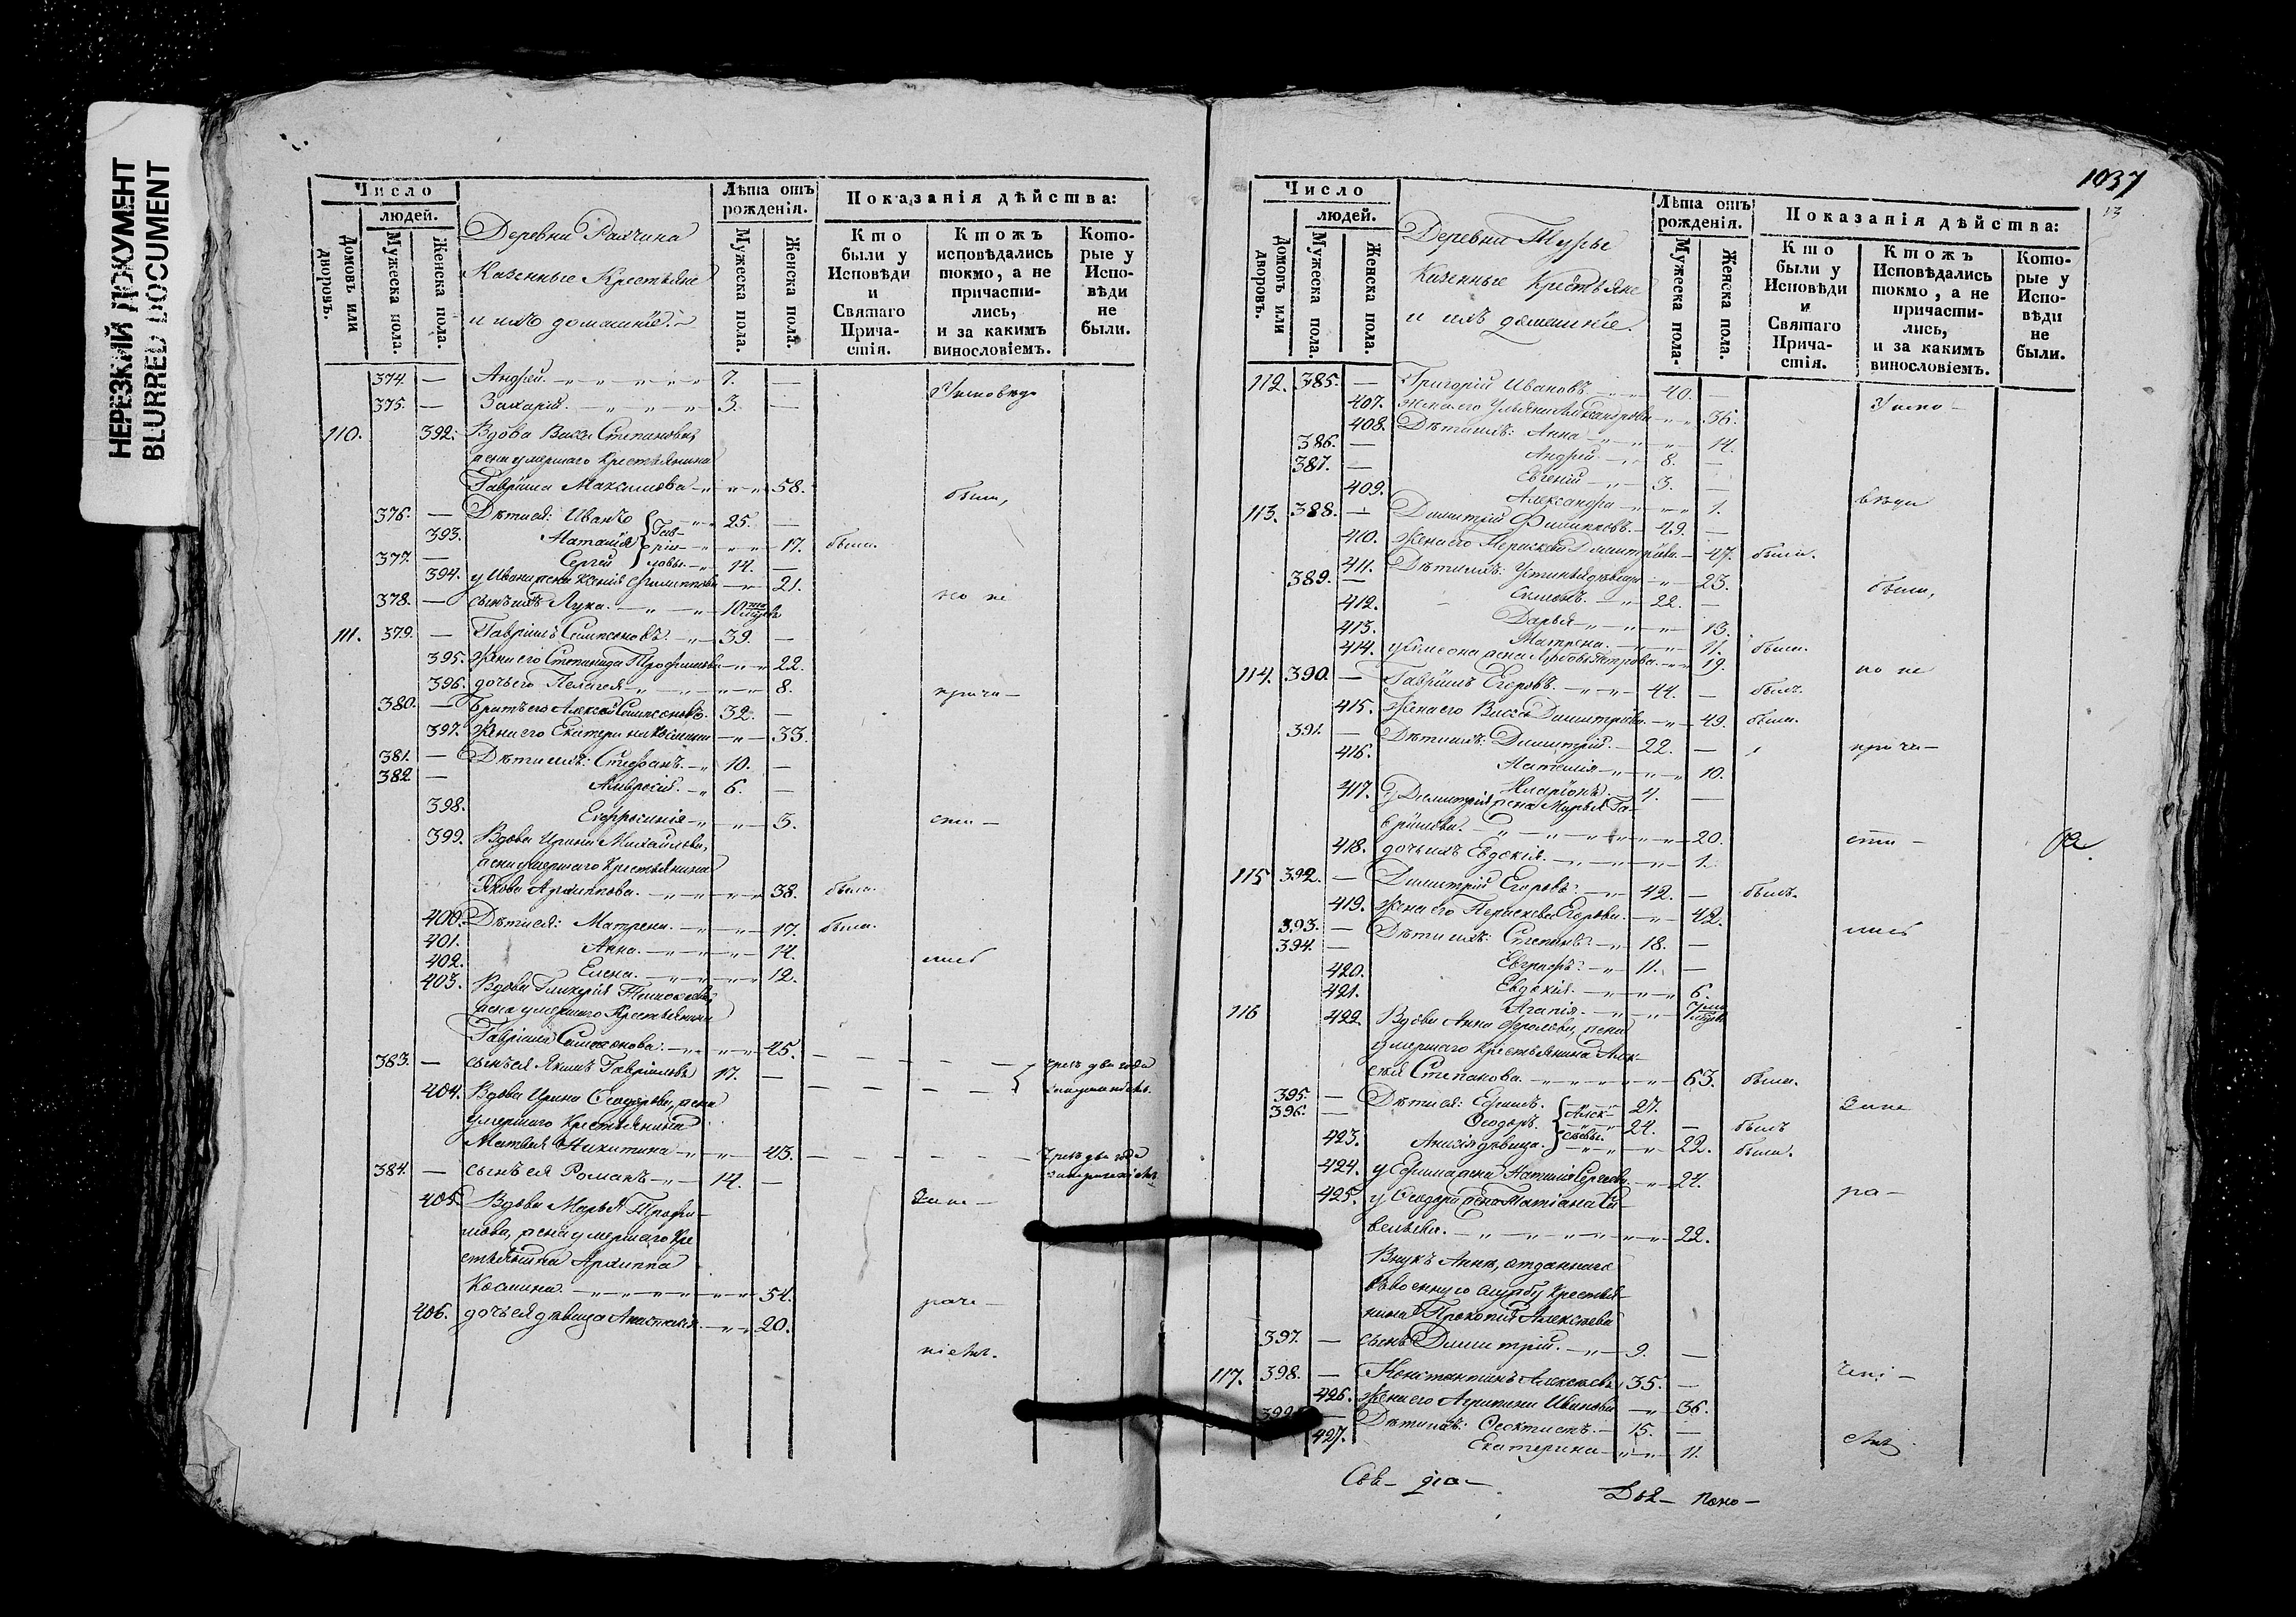 НЕРЕЗКИЙ ДОКУМЕНТ
BLURRED DOCUMENT
Число
людей.
Домовъ или дворовъ.
Мужеска пола.
Женска пола.
Деревни
Казенные Крестьяне
и ихъ домашніе.
Лѣта отъ рожденія.
Мужеска пола.
Женска пола.
Показанія дѣйства:
Кто были у Исповѣди и Святаго Причастія.
Ктожъ исповѣдались токмо, а не причастились, и за какимъ винословіемъ.
Которые у Исповѣди не были.
374. — Андрей. 7. —
375. — Захарій. 3. —
110. 392. Вдова Васса Степанова,
жена умершаго Крестьянина
Гавріила Максимова 58.
были,
376. — Дѣти ея: Иванъ 25. —
393. Наталія 17. была.
377. — Сергей 14. —
Гавріиловы
394. у Ивана жена Ксенія Филиппова 21.
но не
378. — сынъ ихъ Лука. 10
111. 379. — Гавріилъ Самсоновъ. 39. —
395. Жена его Степанида Трофимова 22.
396. дочь его Пелагея 8.
прича-
380. — Братъ его Алексей Самсоновъ. 32. —
397. Жена его Екатерина 33.
381. — Дѣти ихъ: Стефанъ. 10. —
382. — Амвросій. 6. —
398. Евфросинія 3.
сти-
399. Вдова Ирина Михайлова,
жена умершаго Крестьянина
Якова Архиппова. 38. была.
400. Дѣти ея: Матрена. 17. была.
401. Анна. 14.
402. Елена. 12.
лись
403. Вдова Гликерія Тимофеева,
жена умершаго Крестьянина
Гавріила Самсонова. 45.
383. — сынъ ея Якимъ Гавріиловъ 17. —
чрезъ два года
404. Вдова Ирина Ѳеодорова, жена
умершаго Крестьянина
Матвея Никитина 43.
Чрезъ два года
384. — сынъ ея Романъ 14. —
405. Вдова Марья Трофи-
мова, жена умершаго Кре-
стьянина Архиппа
Космина. 54.
406. дочь ея дѣвица Анастасія 20.
1037
13
Число
людей.
Домовъ или дворовъ.
Мужеска пола.
Женска пола.
Деревни Турье
Казенные Крестьяне
и ихъ домашніе.
Лѣта отъ рожденія.
Мужеска пола.
Женска пола.
Показанія дѣйства:
Кто были у Исповѣди и Святаго Причастія.
Ктожъ Исповѣдались токмо, а не причастились, и за какимъ винословіемъ.
Которые у Исповѣди не были.
112. 385. — Григорій Ивановъ 40. —
407. Жена его Ульяна Александрова 36.
408. Дѣти ихъ: Анна 14.
386. — Андрей. 8. —
387. — Евгеній 3. —
409. Александра 1.
113. 388. — Димитрій Филипповъ. 49. —
410. Жена его Параскева Димитріева 47. была.
411. Дѣти ихъ: Устинья дѣвица 23.
389. — Симеонъ. 22. —
были,
412. Дарья 13.
413. Матрена. 11. была.
414. у Симеона жена Любовь Петрова. 19.
но не
114. 390. — Гавріилъ Егоровъ. 44. — былъ.
415. Жена его Васса Димитріева. 49. была.
391. — Дѣти ихъ: Димитрій. 22. —
прича-
416. Наталія 10.
Иларіонъ. 4. —
417. У Димитрія жена Марья Га-
вріилова. 20.
сти-
418. дочь ихъ Евдокія. 1.
115 392. — Димитрій Егоровъ. 42. — былъ.
419. Жена его Параскева Егорова. 42.
лись
393. — Дѣти ихъ: Степанъ. 18. —
394. — Евграфъ. 11. —
420. Евдокія. 6.
421. Агапія.
116 422. Вдова Анна Фролова, жена
умершаго Крестьянина Алек-
сѣя Степанова. 63. была.
395. — Дѣти ея: Ефимъ. 27.
396. — Ѳеодоръ. 24. — былъ
Алексѣевы
423. Анисія дѣвица. 22. была.
424. у Ефима жена Наталія Сергеева 24.
425. у Ѳеодора жена Татіана Са-
вельева. 22.
ра-
Внукъ Анны, отданнаго
въ военную службу Крестья-
нина Прокопія Алексѣева
397. — сынъ Димитрій. 9. —
117. 398. — Константинъ Алексѣевъ 35. —
426. Жена его Агрипина Иванова 36.
399. — Дѣти ихъ: Ѳеоктистъ. 15. —
427. Екатерина 11.